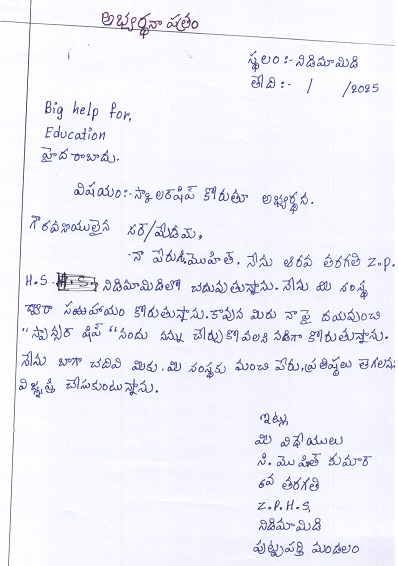 అభ్యర్థనా పత్రం
స్థలం:- నిడిమామిడి
తేది:- / /2025
Big help for,
Education
హైదరాబాదు.
విషయం:- స్కాలరషిప్ కోరుతూ అభ్యర్థన.
గౌరవనీయులైన సర్/మేడమ్,
నా పేరు డి.మొహిత్. నేను ఆరవ తరగతి Z.P.
H.S నిడిమామిడిలో చదువుతున్నాను. నేను మీ సంస్థ
ద్వారా సహాయం కోరుతున్నాను. కావున మీరు నా పై దయవుంచి
"స్పాన్సర షిప్" నందు నన్ను చేర్చుకోవలసినదిగా కోరుతున్నాను.
నేను బాగా చదివి మీకు, మీ సంస్థకు మంచి పేరు, ప్రతిష్ఠలు
విజ్ఞప్తి చేసుకుంటున్నాను.
ఇట్లు
మీ విధేయులు
సి. మొహిత్ కుమార్
6వ తరగతి
Z.P.H.S,
నిడిమామిడి
పుట్టపర్తి మండలం